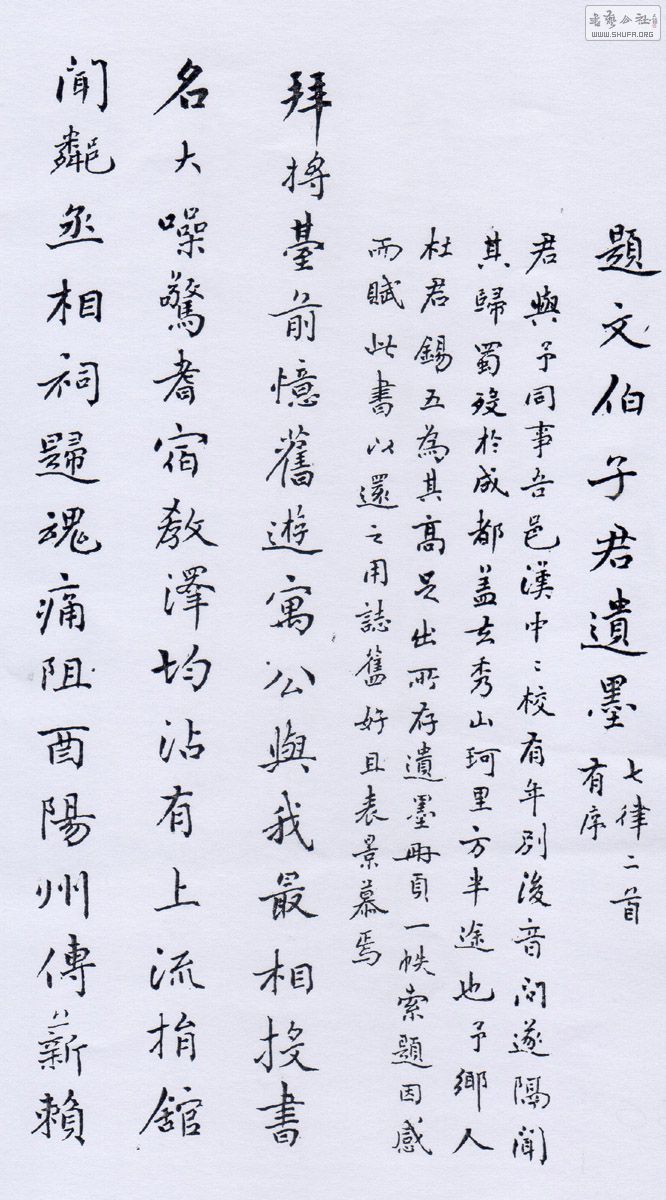 題文伯子君遺墨
七律二首
有序
君與予同事吾邑漢中〻校有年別後音問遂隔聞
其歸蜀歿於成都蓋去秀山珂里方半途也予鄉人
杜君錫五為其高足出所存遺墨冊頁一帙索題因感
而賦此書以還之用誌舊好且表景慕焉
拜將臺前憶舊遊寓公與我最相投書
名大噪驚耆宿教澤均沾有上流捐舘
聞鄰丞相祠歸魂痛阻酉陽州傳薪賴
書藝公社
WWW.SHUFA.ORG